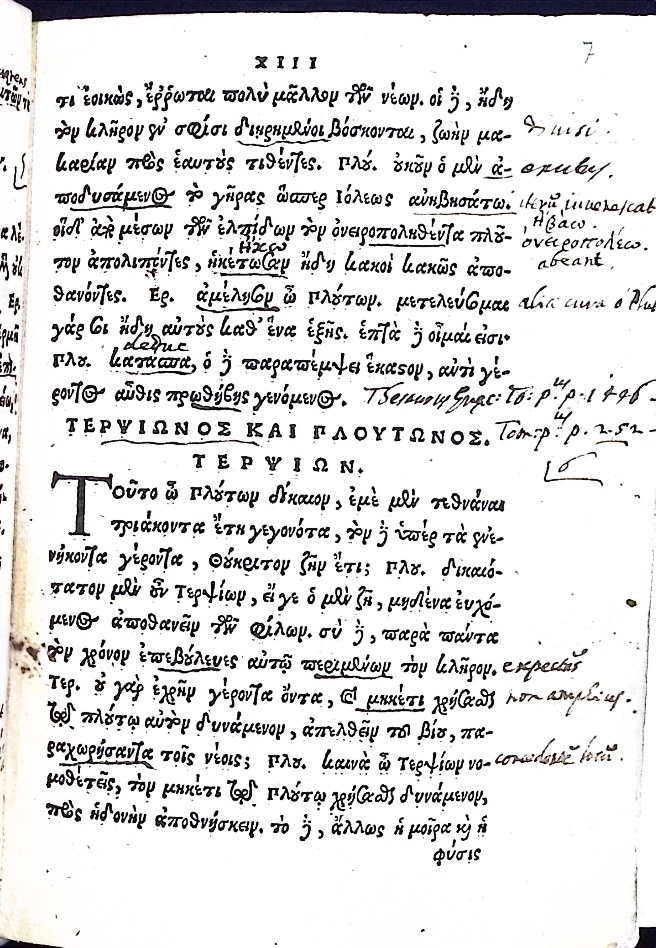 XIII
7
τι ἐοικὼς, ἔῤῥωται πολὺ μᾶλλον τῶν νέων. οἱ δὲ, ἤδη
τὸν κλῆρον ἐν σφίσι διῃρημένοι βόσκονται, ζωὴν μα-
diuisi.
καρίαν πρὸς ἑαυτοὺς τιθέντες. Πλού. οὐκοῦν ὁ μὲν ἀ-
exutus.
ποδυσάμενος τὸ γῆρας ὥσπερ Ιόλεως ἀνηβησάτω.
ἡβάω.
οἱ δὲ ἀπὸ μέσων τῶν ἐλπίδων τὸν ὀνειροποληθέντα πλοῦ-
ὀνειροπολέω.
ἥκω
τον ἀπολιπόντες, ἡκέτωσαν ἤδη κακοὶ κακῶς ἀπο-
abeant.
θανόντες. Ερ. ἀμέλησον ὦ Πλούτων. μετελεύσομαι
alia cura
γάρ σοι ἤδη αὐτοὺς καθ' ἕνα ἑξῆς. ἑπτὰ δὲ οἶμαι εἰσι.
deduc
Πλου. κατάσπα, ὁ δὲ παραπέμψει ἕκαστον, ἀντὶ γέ-
ροντος αὖθις πρωθήβης γενόμενος.
ΤΕΡΨΙΩΝΟΣ ΚΑΙ ΠΛΟΥΤΩΝΟΣ.
p. 252
6
ΤΕΡΨΙΩΝ.
Τοῦτο ὦ Πλούτων δίκαιον, ἐμὲ μὲν τεθνάναι
τριάκοντα ἔτη γεγονότα, τὸν δὲ ὑπὲρ τὰ ἐνε-
νήκοντα γέροντα, Θούκριτον ζῆν ἔτι; Πλου. δικαιό-
τατον μὲν οὖν Τερψίων, εἴ γε ὁ μὲν ζῇ, μηδένα εὐχό-
μενος ἀποθανεῖν τῶν φίλων. σὺ δὲ, παρὰ πάντα
τὸν χρόνον ἐπεβούλευες αὐτῷ περιμένων τὸν κλῆρον.
expectans
Τερ. οὐ γὰρ ἐχρῆν γέροντα ὄντα, καὶ μηκέτι χρῆσθαι
non amplius.
τῷ πλούτῳ αὐτὸν δυνάμενον, ἀπελθεῖν τοῦ βίου, πα-
ραχωρήσαντα τοῖς νέοις; Πλου. καινὰ ὦ Τερψίων νο-
μοθετεῖς, τὸν μηκέτι τῷ πλούτῳ χρῆσθαι δυνάμενον,
πρὸς ἡδονὴν ἀποθνήσκειν. τὸ δὲ, ἄλλως ἡ μοῖρα καὶ ἡ
φύσις